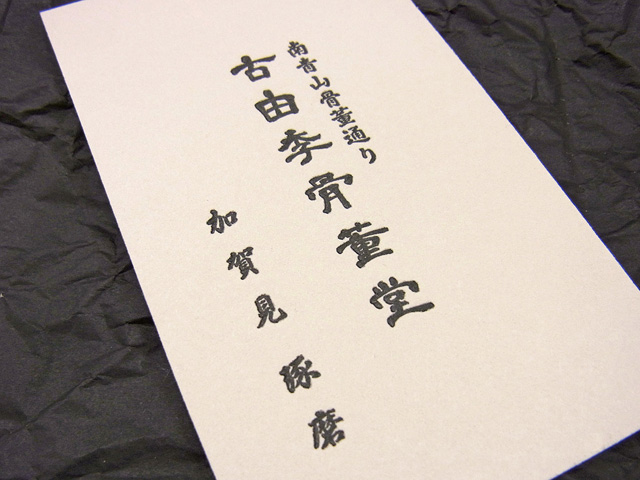 南青山骨董通り
古由李骨董堂
加賀見 琢磨